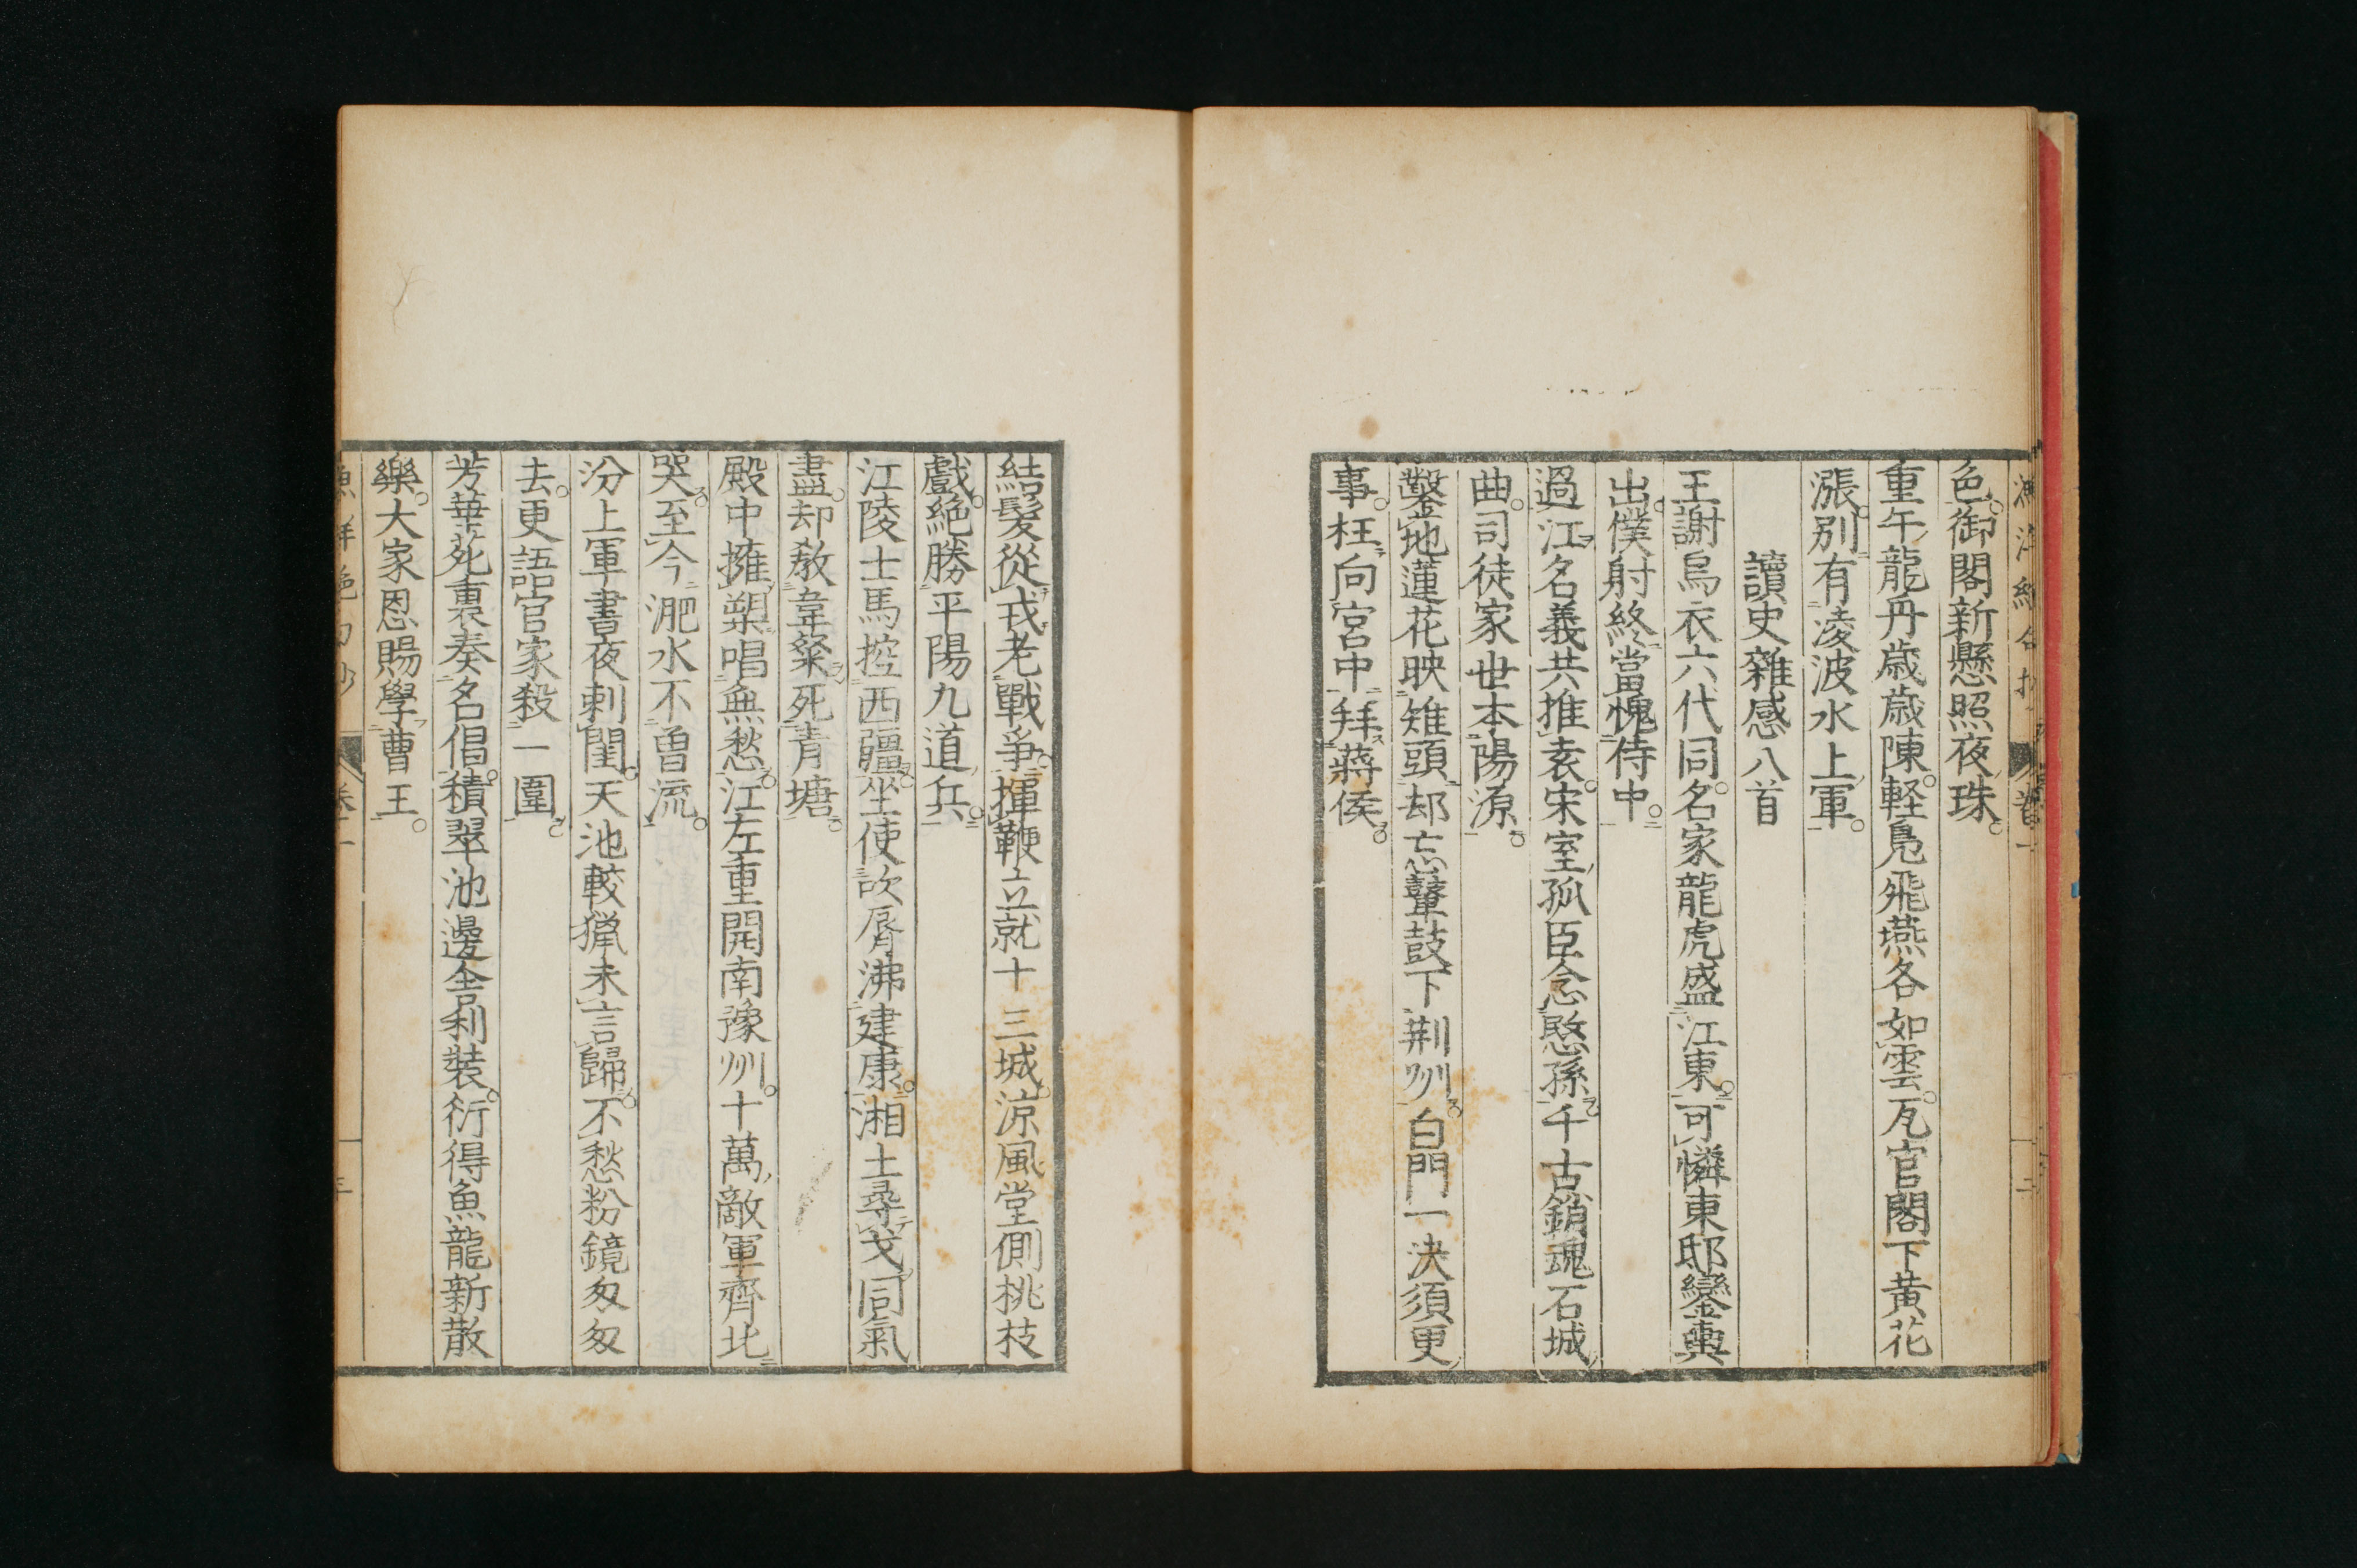 色御閣新懸照夜珠
重午龍丹歳歳陳軽鳬飛燕各如雲瓦官閣下黄花
漲別有凌波水上軍
讀史雜感八首
王謝烏衣六代同名家龍虎盛江東可憐東邸鑾輿
出僕射終當愧侍中
過江名義共推袁宋室孤臣念愍孫千古銷魂石城
曲司徒家世本陽源
鑿地蓮花映雉頭却忘鼙鼓下荆州白門一決須更
事枉向宮中拜蔣侯
結髮從戎老戰爭揮鞭立就十三城涼風堂側桃枝
戲絶勝平陽九道兵
江陵士馬控西疆坐使欻脣沸建康湘土尋戈同氣
盡却教韋粲死青塘
殿中擁槊唱無愁江左重開南豫州十萬敵軍齊北
哭至今淝水不曾流
汾上軍書夜刺閨天池較猟未言歸不愁粉鏡匆匆
去更語官家殺一圍
芳華苑裏奏名倡積翠池邊全利裝衍得魚龍新散
樂大家恩賜學曹王